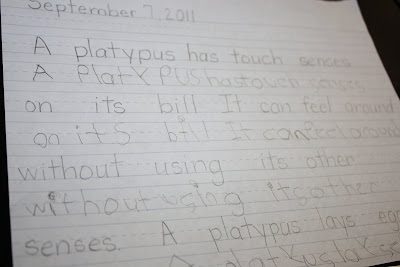 September 7, 2011
A platypus has touch sences
A PlatYPUS has touch
on its bill It can feel around
on itS bill It can feel around
without using its other
without using its other
senses. A platypus lays egg
A platYpus laYs